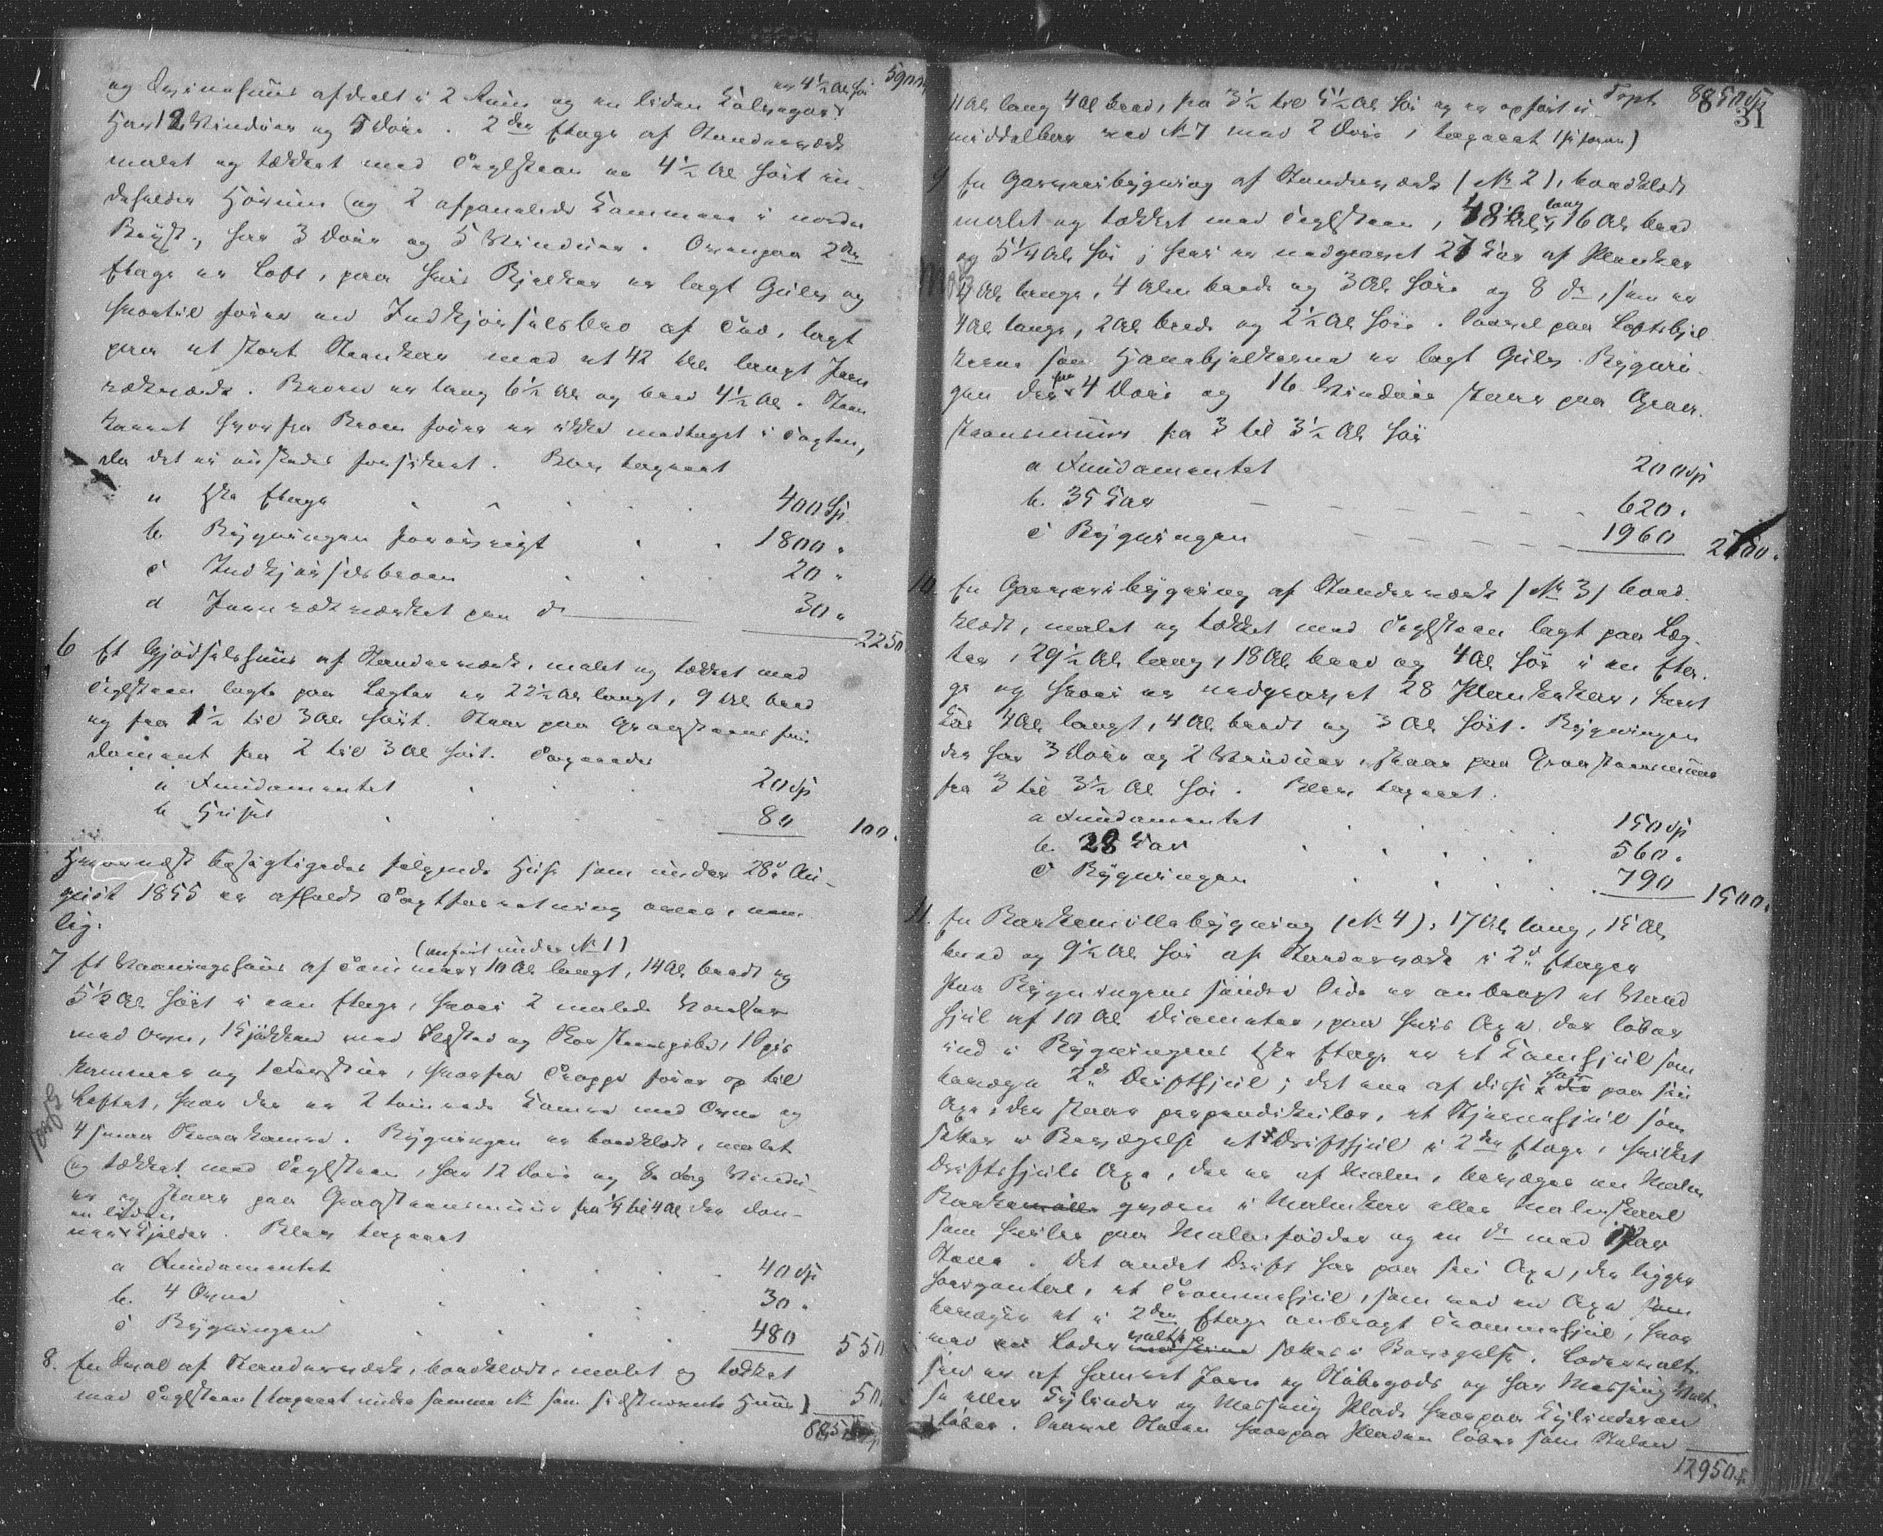 og Svinehuus afdeelt i 2 Rum og en liden Kalvegar er 4½ Al høi 5900
Har 12 Vinduer og 5 Døre. 2den Etage af Standerværk
malet og tækket med Teglsteen er 4½ Al høit in-
deholder Hörum og 2 afpanelede Kammere i nordre
Bryst, har 3 Döre og 5 Vinduer. Ovenpaa 2den
Etage er Loft, paa hvis Bjelker er lagt Gulv og
hvortil fører en Indkjørselsbro af Træ, lagt
paa et stort Steenkar med et 42 Al langt Jern
rækværk. Broen er lang 6½ Al og bred 4½ Al. Steen
karret hvorfra Broen fører er ikke medtaget i Taxten,
da det er ansteds forsikret. Blev taxeret
a 1ste Etage 400 Sp
b. Bygningen forøvrigt 1800 "
c Indkjørselsbroen 20 "
d Jernrækværket paa do 30 "
2250
6 Et Gjødselshuus af Standerværk, malet og tækket med
Teglsteen lagte paa Lægter er 22½ Al langt, 9 Al bred
og fra 1½ til 3 Al høit. Staar paa Graasteens fun
dament fra 2 til 3 Al høit. Taxeredes
a Fundamentet 20 Sp
b Huset 80 100.
Hvornæst besigtigedes følgende Huse som under 28 Au-
gust 1855 er afholdt Taxtforretning over, nem
lig:
7 Et Vaaningshuus af Tømmer (anført under No 1) 10 Al langt, 14 Al bredt og
5½ Al høit i een Etage, hvori 2 malede Værelser
med Ovn, 1 Kjøkken med Ildsted og Skorsteenspibe, 1 Spis
kammer og 1 Forstue, hvorfra Trappe fører op til
Loftet, hvor der er 2 tømrede Kamre med Ovne og
4 smaa Kamre. Bygningen er bordklædt, malet
og tækket med Teglsteen, har 12 Døre og 8 fag Vindu-
er og staar paa Graasteensmuur fra ¼ til 4 Al der dan-
ner en liden Kjelder. Blev taxeret
a Fundamentet 40 Sp
b. 4 Ovne 30 "
c Bygningen 480 550
8. En Sval af Standerværk, bordklædt, malet og tækket
med Teglsteen (taxeret under samme No som sidstnævnte Huus) 50
8850 Sp
Trpt 8850 Sp
31
11 Al lang 4 Al bred, fra 3½ til 5½ Al høi og er opført u-
middelbar ved No 7 med 2 Døre, taxeret
9 En Garveribygning af Standerværk (No 2), bordklædt
malet og tækket med Teglsteen, 48 Al lang 16 Al bred
og 5¼ Al høi; hvori er nedgravet 27 Kar af Planker
4 Al lange, 4 Alen brede og 3 Al høie og 8 do, som er
4 Al lange, 2 Al brede og 2½ Al høie. Saavel paa Loftsbjel
kerne som Hanebjelkerne er lagt Gulv. Bygnin-
gen der har 4 Døre og 16 Vinduer staar paa Graa-
steensmuur fra 3 til 3½ Al høi
a Fundamentet 200 Sp
b. 35 Kar 620 "
c Bygningen 1960 2780.
10. En Garveribygning af Standerværk (No 3) bord-
klædt, malet og tækket med Teglsteen lagt paa Læg-
ter, 29½ Al lang, 18 Al bred og 4 Al høi i en Eta-
ge og hvori er nedgravet 28 Plankekar, hvert
Kar 4 Al langt, 4 Al bredt og 3 Al høit. Bygningen
der har 3 Døre og 2 Vinduer, staar paa Graasteensmuur
fra 3 til 3½ Al høi. Blev taxeret.
a Fundamentet 150 Sp
b. 28 Kar 560 "
c Bygningen 790 1500.
11. En Barkemøllebygning (No 4), 17 Al lang, 15 Al
bred og 9½ Al høi af Standerværk i 2 Etager
Paa Bygningens søndre Side er anbragt et Vand
hjul af 10 Al Diameter, paa hvis Axe der løber
ind i Bygningens 1ste Etage er et Kamhjul som
bevæger 2de Drifthjul; det ene af disse har paa sin
Axe, der staar perpendikulær, et Stjernehjul som
sætter i Bevægelse et Drifthjul i 2den Etage, hvilket
Drifthjuls Axe, der er af Malm, bevæger en Malm
Barke qværn i Malmkar eller Malmskaal
som hviler paa Malmfødder og en do med
Stene. Det andet Drift har paa sin Axe, der ligger
horizontal, et Trommehjul, som ved en Axe
bevæger et i 2den Etage anbragt Trommehjul, hvor
ved en Lædervalse sættes i Bevægelse. Lædervalt-
sen er af hamret Jern og Støbegods og har Messing Valt-
se eller Cylinder og Messing Plade hvorpaa Cylinderen
løber. Saavel Stolen hvorpaa Pladen løber som Stolen
12950.